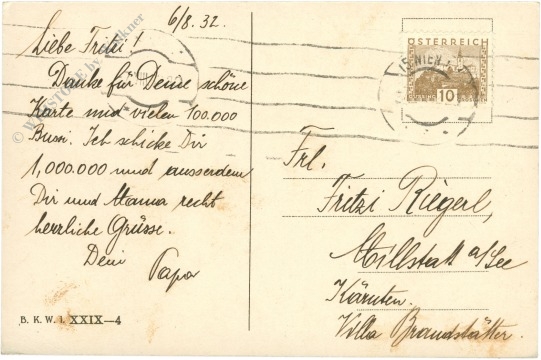 6/8. 32.
Liebe Fritzi!
Danke für Deine schöne
Karte und vielen 100.000
Bussi. Ich schicke Dir
1,000.000 und ausserdem
Dir und Mama recht
herzliche Grüsse.
Dein
Papa
B. K. W. I. XXIX—4
ÖSTERREICH
10
WIEN
Frl.
Fritzi Riegerl,
Millstatt a/See
Kärnten.
Villa Brandstätter.